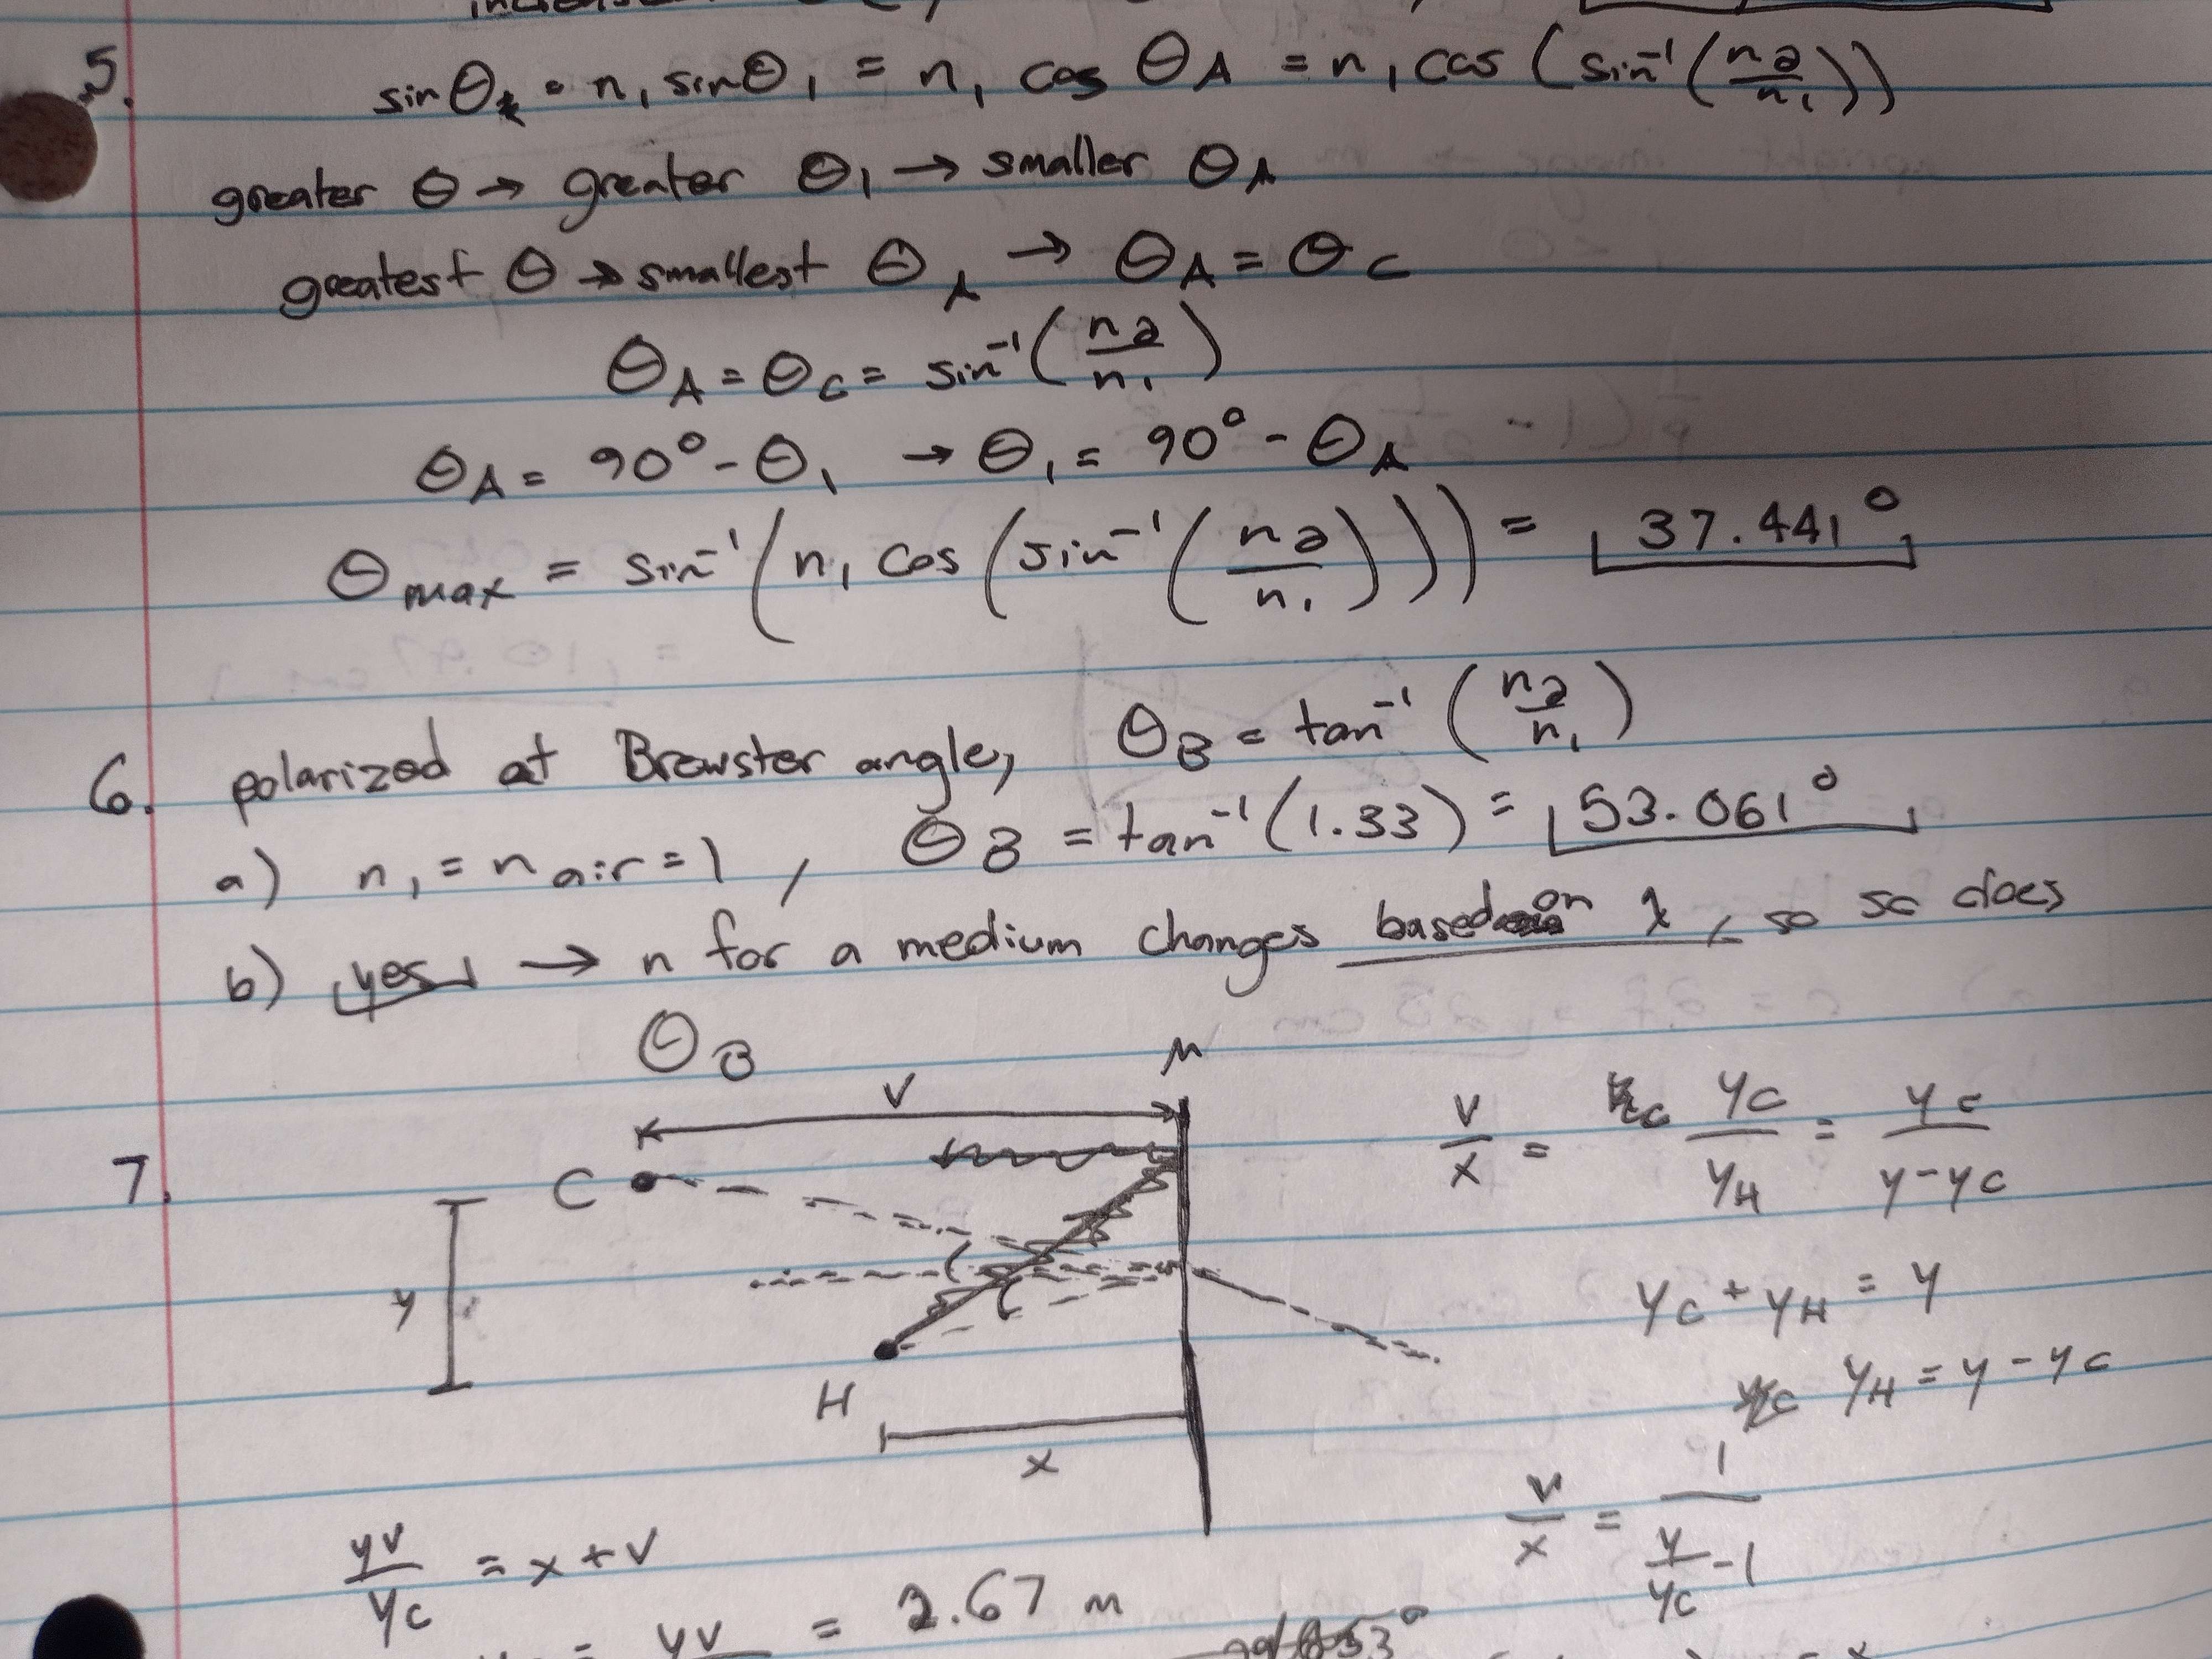 5.
sin θ₂ = n₁ sin θ₁ = n₁ cos θ_A = n₁ cos (sin⁻¹(n₂/n₁))
greater θ → greater θ₁ → smaller θ_A
greatest θ → smallest θ_A → θ_A = θ_C
θ_A = θ_C = sin⁻¹(n₂/n₁)
θ_A = 90° - θ₁ → θ₁ = 90° - θ_A
θ_max = sin⁻¹(n₁ cos(sin⁻¹(n₂/n₁))) = 37.441°
6. polarized at Brewster angle, θ_B = tan⁻¹(n₂/n₁)
a) n₁ = n_air = 1, θ_B = tan⁻¹(1.33) = 53.061°
b) yes → n for a medium changes based on λ, so so does
θ_B
7.
V
M
C
y
H
x
V/x = y_C/y_H = y_C/(y-y_C)
y_C + y_H = y
y_H = y - y_C
V/x = 1/(y/y_C - 1)
yV/y_C = x + V
= yV = 2.67 m